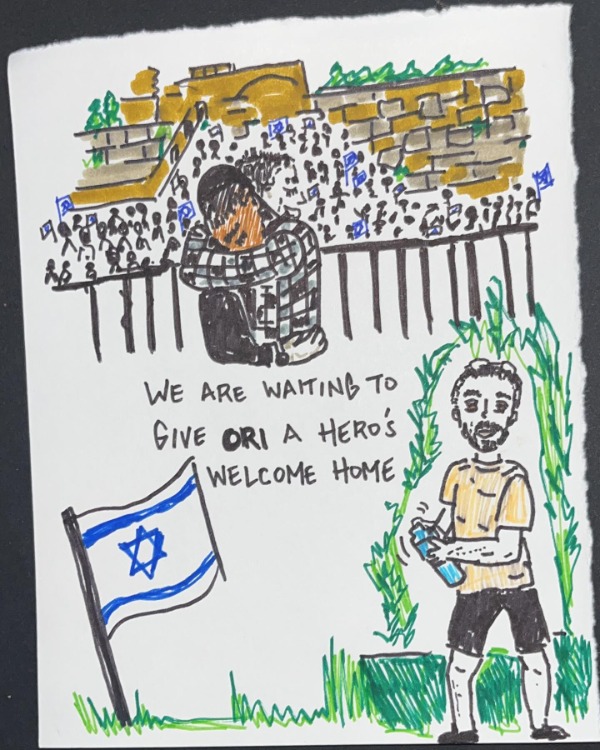 WE ARE WAITING TO
GIVE ORI A HERO'S
WELCOME HOME